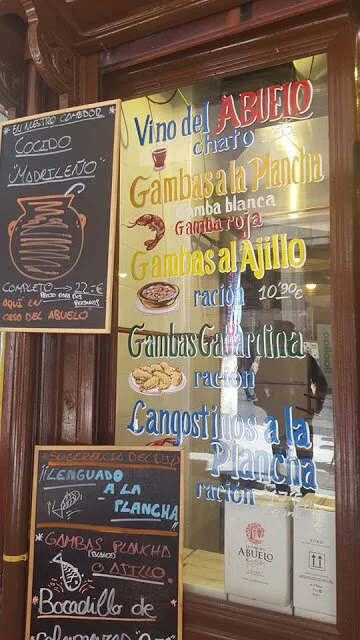 * EN NUESTRO COMEDOR *
COCIDO
"MADRILEÑO"
COMPLETO → 22.-€
AQUÍ EN
CASA DEL ABUELO
Vino del ABUELO
chato
Gambas a la Plancha
Gamba blanca
Gamba roja
Gambas al Ajillo
ración 10'90€
Gambas Gabardina
ración
Langostinos a la
Plancha
ración
* SUGERENCIA DEL DÍA
¡¡LENGUADO
A LA
PLANCHA
* GAMBAS PLANCHA
O AJILLO.
* Bocadillo de
ABUELO